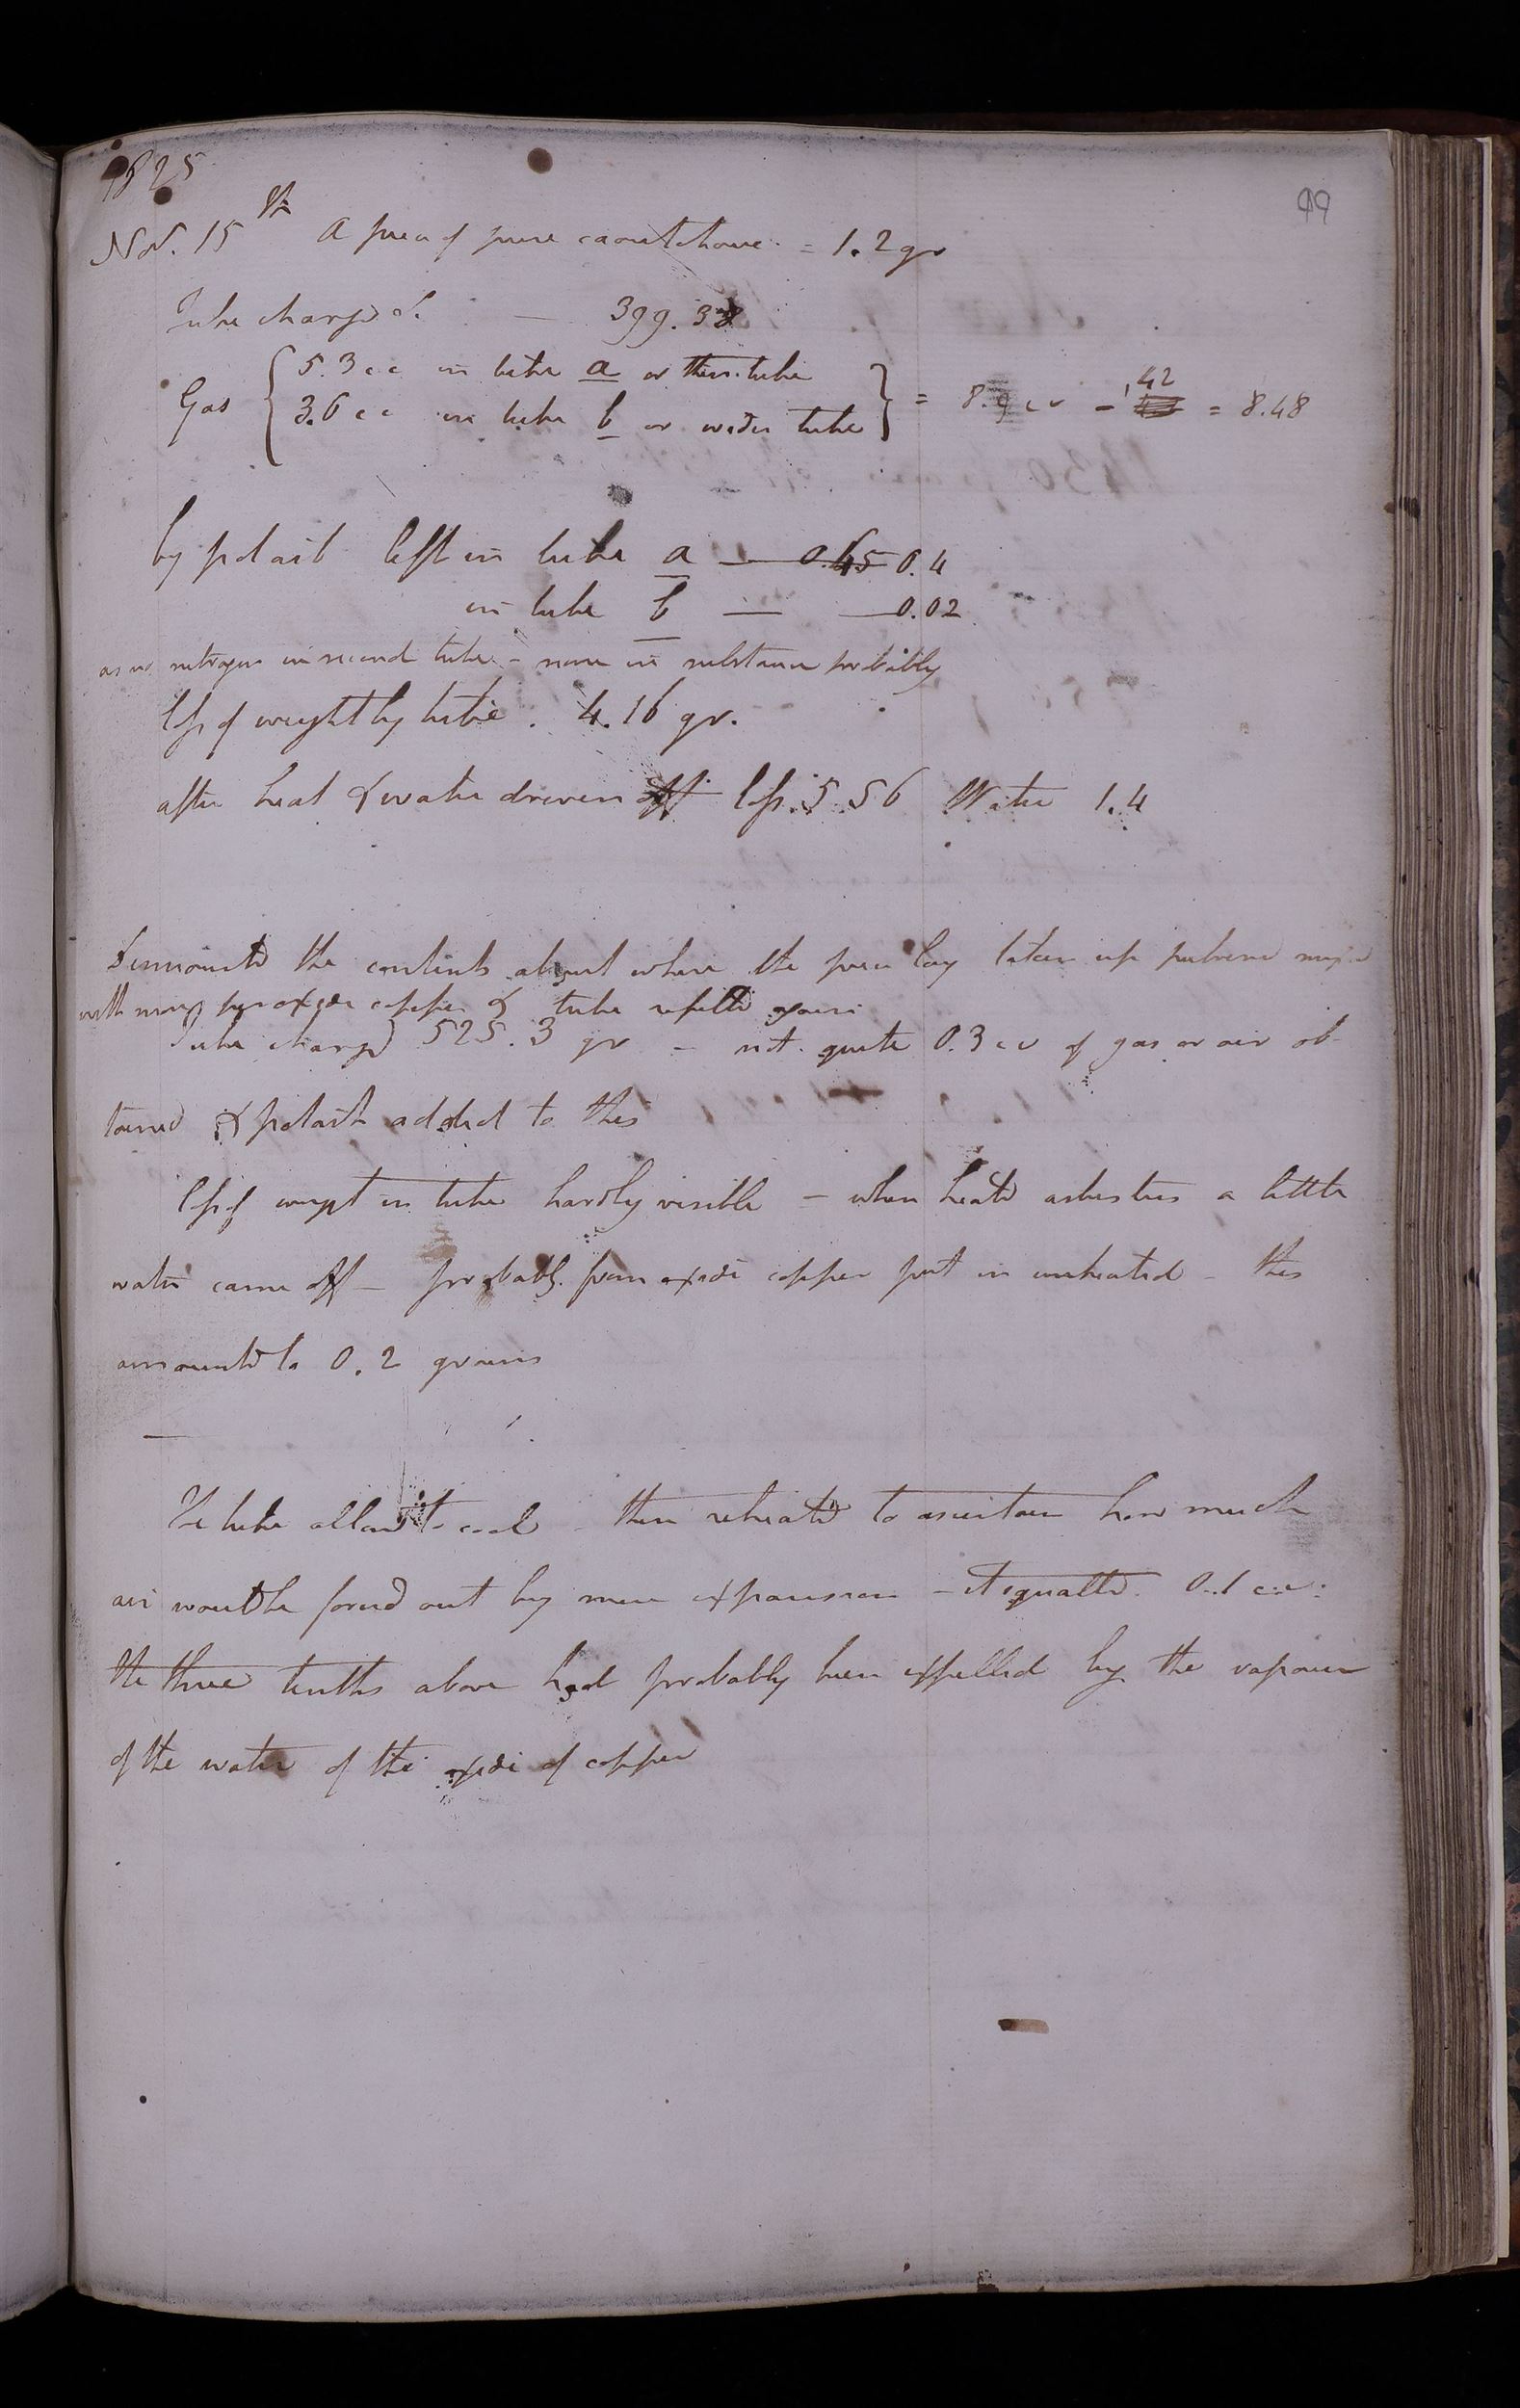 1825
99
Nov. 15th A piece of pure caoutchouc = 1.2 gr
Tube charged &c — 399.38
Gas { 5.3 c c in tube a or thin tube
3.6 c c in tube b or wider tube } = 8.9 c c - ,42 = 8.48
by potash left in tube a — 0.65 0.4
in tube b — — 0.02
as no nitrogen in second tube - none in substance probably
loss of weight by tube . 4.16 gr.
after heat & water driven off loss 5.56 Water 1.4
the contents about where the piece lay taken up mixed
with more peroxide copper & tube refilled again
Tube charged 525.3 gr - not quite 0.3 c c of gas or air ob-
tained & potash added to this
loss of weight in tube hardly visible - when heated asbestus a little
water came off - probably from oxide copper put in unheated - this
amounted to 0.2 grains
The tube allowed to cool then reheated to ascertain how much
air would be forced out by mere expansion - it equalled 0.1 c.c.
the three tenths above had probably been expelled by the vapour
of the water of the oxide of copper